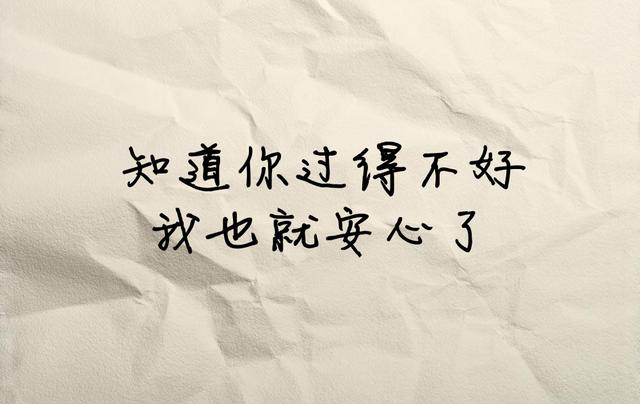 知道你过得不好
我也就安心了